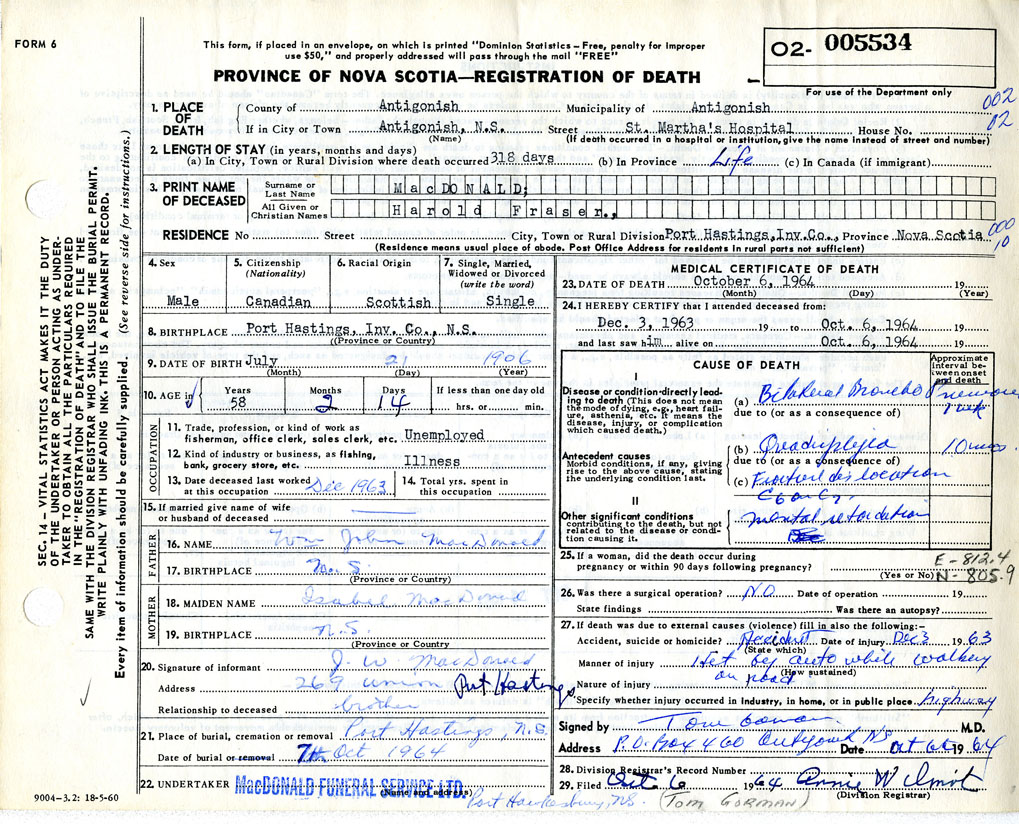 FORM 6
This form, if placed in an envelope, on which is printed "Dominion Statistics - Free, penalty for improper
use $50," and properly addressed will pass through the mail "FREE"
PROVINCE OF NOVA SCOTIA—REGISTRATION OF DEATH
O2- 005534
For use of the Department only
002
02
1. PLACE OF DEATH
County of Antigonish Municipality of Antigonish
If in City or Town Antigonish, N.S. Street St. Martha's Hospital House No.
(Name) (If death occurred in a hospital or institution, give the name instead of street and number)
2. LENGTH OF STAY (in years, months and days)
(a) In City, Town or Rural Division where death occurred 318 days (b) In Province Life (c) In Canada (if immigrant)
3. PRINT NAME OF DECEASED
Surname or Last Name MacDONALD;
All Given or Christian Names Harold Fraser.,
RESIDENCE No Street City, Town or Rural Division Port Hastings, Inv. Co., Province Nova Scotia
000
10
(Residence means usual place of abode. Post Office Address for residents in rural ports not sufficient)
4. Sex
Male
5. Citizenship
(Nationality)
Canadian
6. Racial Origin
Scottish
7. Single, Married, Widowed or Divorced
(write the word)
Single
8. BIRTHPLACE Port Hastings, Inv. Co., N.S.
((Province or Country)
9. DATE OF BIRTH July 21 1906
(Month) (Day) (Year)
10. AGE in
Years 58
Months 2
Days 14
If less than one day old
hrs. or min.
OCCUPATION
11. Trade, profession, or kind of work as
fisherman, office clerk, sales clerk, etc. Unemployed
12. Kind of industry or business, as fishing,
bank, grocery store, etc. Illness
13. Date deceased last worked
at this occupation Dec 1963
14. Total yrs. spent in
this occupation
15. If married give name of wife
or husband of deceased
FATHER
16. NAME Wm John MacDonald
17. BIRTHPLACE N.S.
(Province or Country)
MOTHER
18. MAIDEN NAME Isabel MacDonald
19. BIRTHPLACE N.S.
(Province or Country
20. Signature of informant J. W. MacDonald
Address 269 Union Port Hastings
Relationship to deceased brother
21. Place of burial, cremation or removal Port Hastings, N.S.
Date of burial or removal 7th Oct 1964
22. UNDERTAKER MacDONALD FUNERAL SERVICE LTD.
(Name and address)
Port Hawkesbury, N.S. (TOM GORMAN)
9004-3.2: 18-5-60
MEDICAL CERTIFICATE OF DEATH
23. DATE OF DEATH October 6, 1964 19
(Month) (Day) (Year)
24. I HEREBY CERTIFY that I attended deceased from:
Dec. 3, 1963 19 to Oct. 6, 1964 19
and last saw him alive on Oct. 6, 1964 19
CAUSE OF DEATH
Approximate interval between onset and death
I
Disease or condition directly leading to death (This does not mean the mode of dying, e.g., heart failure, asthenia, etc. It means the disease, injury, or complication which caused death.)
(a) Bilateral Broncho Pneumonia
due to (or as a consequence of) 1 week
Antecedent causes
Morbid conditions, if any, giving rise to the above cause, stating the underlying condition last.
(b) Quadriplegia 10 mos.
due to (or as a consequence of)
(c) Fracture dislocation
C6 on C7
II
Other significant conditions
contributing to the death, but not related to the disease or condition causing it.
mental retardation
25. If a woman, did the death occur during
pregnancy or within 90 days following pregnancy?
(Yes or No)
E - 812.4
N - 805.9
26. Was there a surgical operation? NO Date of operation 19
State findings Was there an autopsy?
27. If death was due to external causes (violence) fill in also the following:-
Accident, suicide or homicide? Accident Date of injury Dec 3 1963
(State which)
Manner of injury Hit by auto while walking
on road (How sustained)
Nature of injury
Specify whether injury occurred in industry, in home, or in public place. highway
Signed by Tom Gorman M.D.
Address P.O. Box 460 Antigonish NS Date Oct 6th 1964
28. Division Registrar's Record Number
29. Filed Oct. 6 1964
(Division Registrar)
SEC. 14 - VITAL STATISTICS ACT MAKES IT THE DUTY
OF THE UNDERTAKER OR PERSON ACTING AS UNDER-
TAKER TO OBTAIN ALL THE PARTICULARS REQUIRED
IN THE "REGISTRATION OF DEATH" AND TO FILE THE
SAME WITH THE DIVISION REGISTRAR WHO SHALL ISSUE THE BURIAL PERMIT.
WRITE PLAINLY WITH UNFADING INK. THIS IS A PERMANENT RECORD.
Every item of information should be carefully supplied. (See reverse side for instructions.)